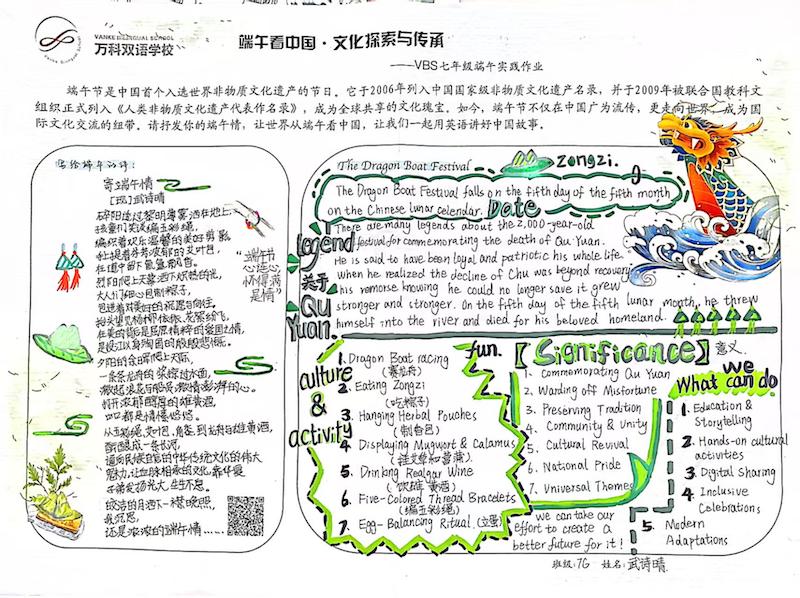 VANKE BILINGUAL SCHOOL
万科双语学校
端午看中国·文化探索与传承
——VBS七年级端午实践作业
端午节是中国首个入选世界非物质文化遗产的节日。它于2006年列入中国国家级非物质文化遗产名录，并于2009年被联合国教科文
组织正式列入《人类非物质文化遗产代表作名录》，成为全球共享的文化瑰宝。如今，端午节不仅在中国广为流传，更走向世界，成为国
际文化交流的纽带。请抒发你的端午情，让世界从端午看中国，让我们一起用英语讲好中国故事。
写给端午的诗：
寄端午情
[现]武诗晴
碎阳透过黎明薄雾洒在地上
孩童们笑谈编五彩绳，
编织着欢乐温馨的美好剪影。
烈阳爬上天幕洒下炽热的光，
夕阳的余晖爬上天际，
从五彩绳、艾叶包、角黍到龙舟与雄黄酒，
皎洁的月洒下一襟晚照，
我沉思，
还是浓浓的端午情……
“端午节
心连心
怀得满
是情”
The Dragon Boat Festival
zongzi.
The Dragon Boat Festival falls on the fifth day of the fifth month
on the Chinese lunar celendar.
Date
legend
关于
Qu
Yuan.
There are many legends about the 2,000-year-old
festival for commemorating the death of Qu Yuan.
He is said to have been loyal and patriotic his whole life.
When he realized the decline of Chu was beyond recovery,
his remorse knowing he could no longer save it grew
stronger and stronger. On the fifth day of the fifth lunar month, he threw
himself into the river and died for his beloved homeland.
culture
&
activity
fun.
1. Dragon Boat racing
(赛龙舟)
2. Eating Zongzi
(吃粽子)
3. Hanging Herbal Pouches
(制香包)
4. Displaying Mugwort & Calamus
(挂艾草和菖蒲).
5. Drinking Realgar Wine
(饮雄黄酒)
6. Five-Colored Thread Bracelets
(编五彩绳)
7. Egg-Balancing Ritual. (立蛋)
【Significance】意义.
1. Commemorating Qu Yuan
2. Warding off Misfortune
3. Preserving Tradition
4. Community & Unity
5. Cultural Revival
6. National Pride
7. Universal Themes
we can take our
effort to create a
better future for it!
we
What can do
1. Education &
Storytelling
2. Hands-on cultural
activities
3. Digital Sharing
4. Inclusive
Celebrations
5. Modern
Adaptations
班级：7G 姓名：武诗晴